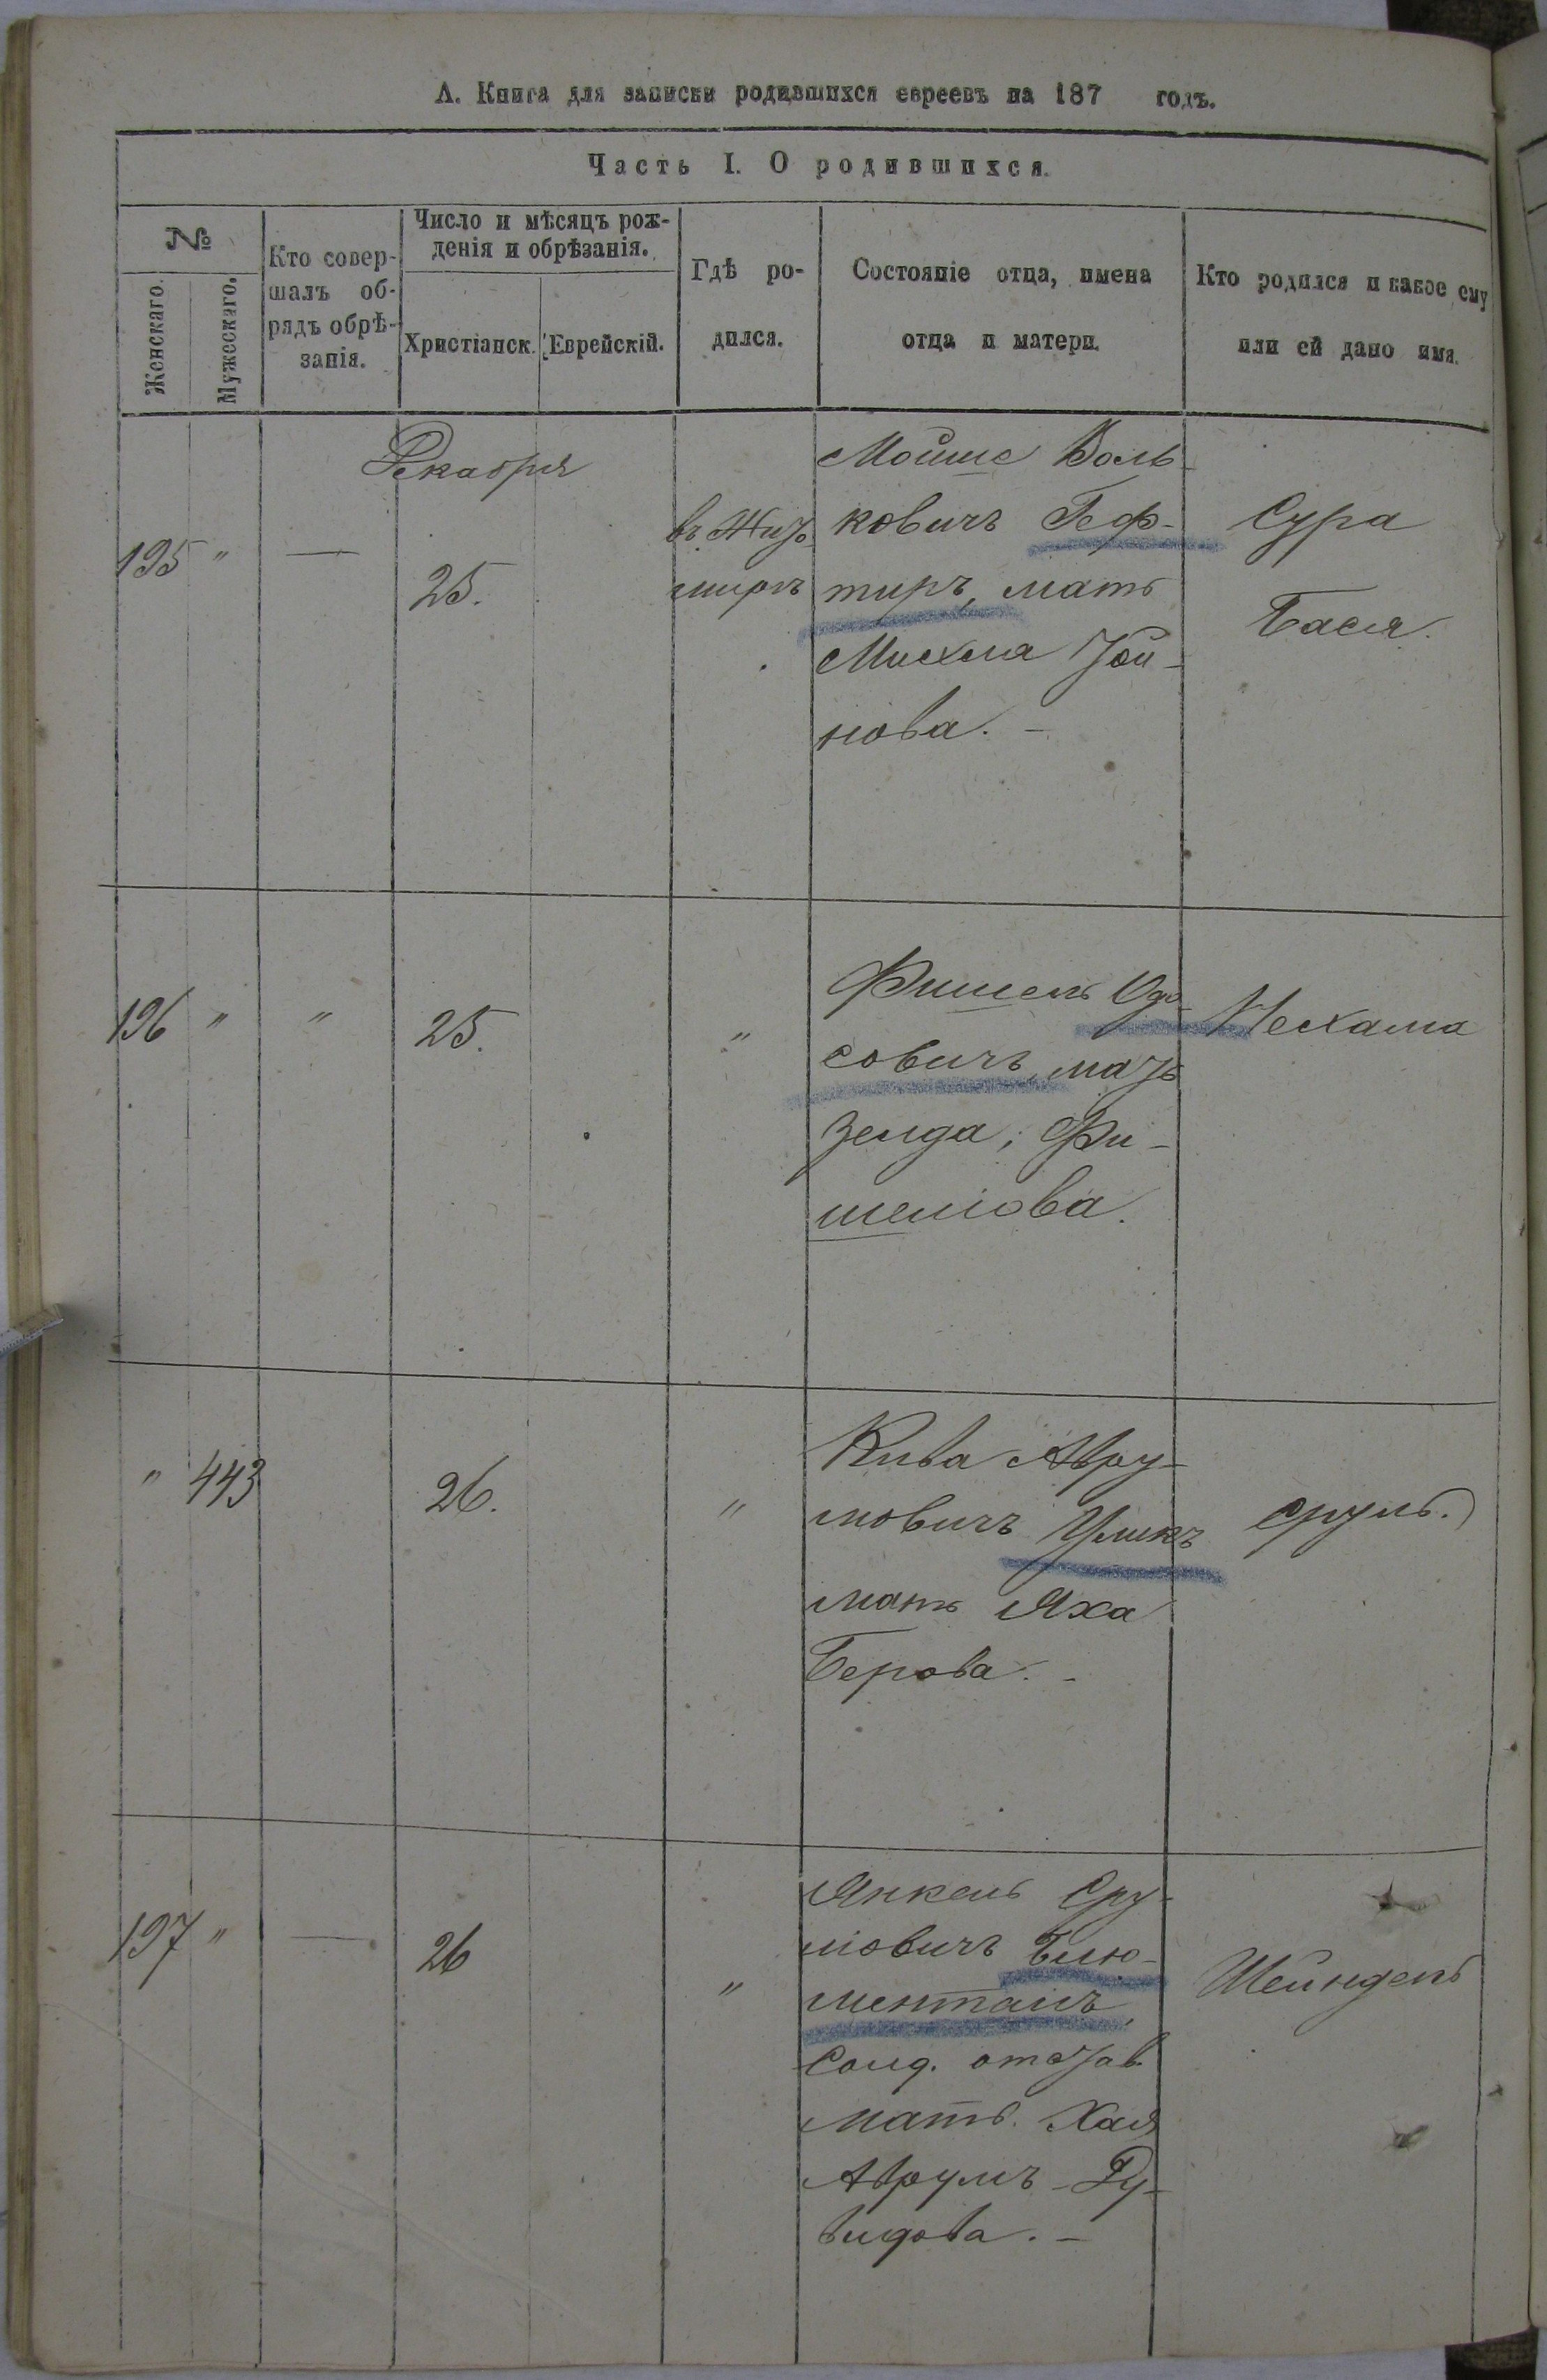 А. Книга для записки родившихся евреевъ на 187 годъ.
Часть I. О родившихся.
№
Женскаго.
Мужескаго.
Кто совер-
шалъ об-
рядъ обрѣ-
занія.
Число и мѣсяцъ рож-
денія и обрѣзанія.
Христіанск.
Еврейскій.
Гдѣ ро-
дился.
Состояніе отца, имена
отца и матери.
Кто родился и какое ему
или ей дано имя.
Декабря
195 " —
25.
въ Жито
мирѣ
Мойше Воль-
ковичъ Геф-
тиръ, мать
Михля Той-
нова. -
Сура
Бася.
196 " "
25.
"
Фишель Одо
совичъ, мать
Зелда, Фи-
шелова.
Нехама
" 443
26.
"
Кива Авру-
мовичъ Уликъ
мать Яха
Берова. -
Сруль.
197 " —
26
"
Янкель Сру-
ловичъ Блю-
менталъ,
Солд. отстав
мать. Хая
Аврумъ-Ду-
видова. -
Шейндель